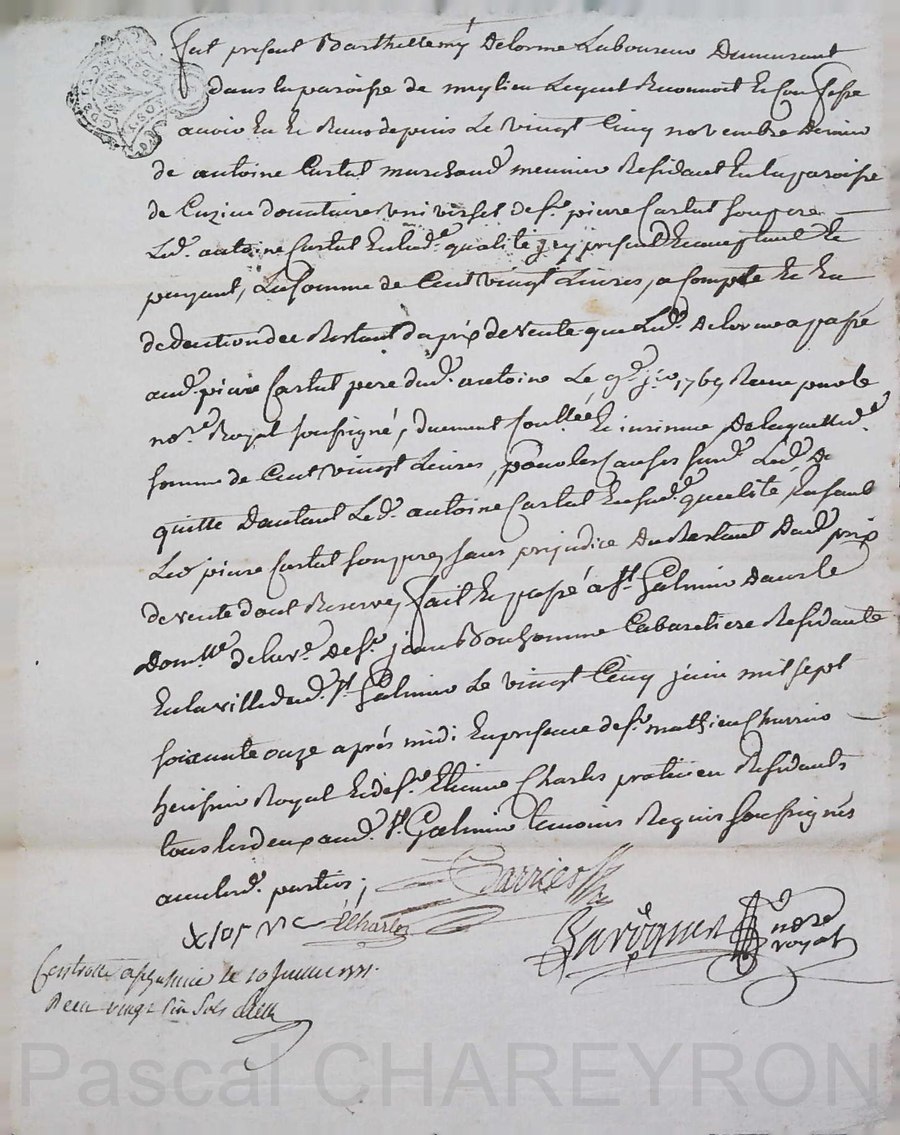 fut present Barthellemy Delorme Laboureur Demeurant
dans la paroisse de meylieu Lequel Reconnoit Et Confesse
avoir Eu Et Reçu depuis Le vingt Cinq novembre dernier
de antoine Cartal marchand meunier Residant En la paroisse
de Cuzieu donataire universel de Sr. pierre Cartal son pere
Led. antoine Cartal En lad.e qualité y present Et acceptant Et
payant, La somme de Cent vingt Livres, a Compte Et En
deduction du Restant du prix de vente que Led. Delorme a passé
aud. pierre Cartal pere dud. antoine Le 1769 Recue par le
no.re Royal soussigné, duement Et insinué De laquelle d.e
somme de Cent vingt Livres, pour les causes susd. Led. De
quitte D'autant Led. antoine Cartal En sad. qualité,
Led pierre Cartal son pere, sans prejudice Du Restant Dud. prix
de vente dont Reserve, fait Et passé a St. Galmier Dans le
Dom.lle de la ve. De Sr. jean Bonhomme Cabaretiere Residante
En la ville dud. St. Galmier Le vingt Cinq juin mil sept
soixante onze après midi En presence de Sr. mathieu
huissier Royal Et de Sr. Etienne Charles praticien Residants
tous les deux aud. St. Galmier temoins Requis soussignés
avec lesd. parties;
E Charles
no.re
royal
Controllé a St Galmier le 10 Juillet 1771
Reçu vingt Six Sols
Pascal CHAREYRON